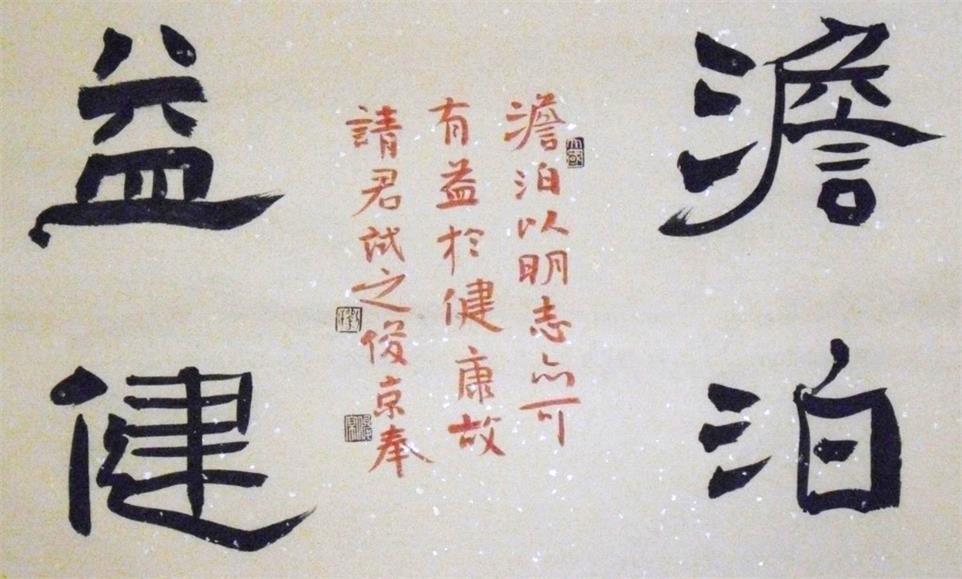 澹泊
澹泊以明志亦可
有益於健康故
請君試之俊京奉
益健